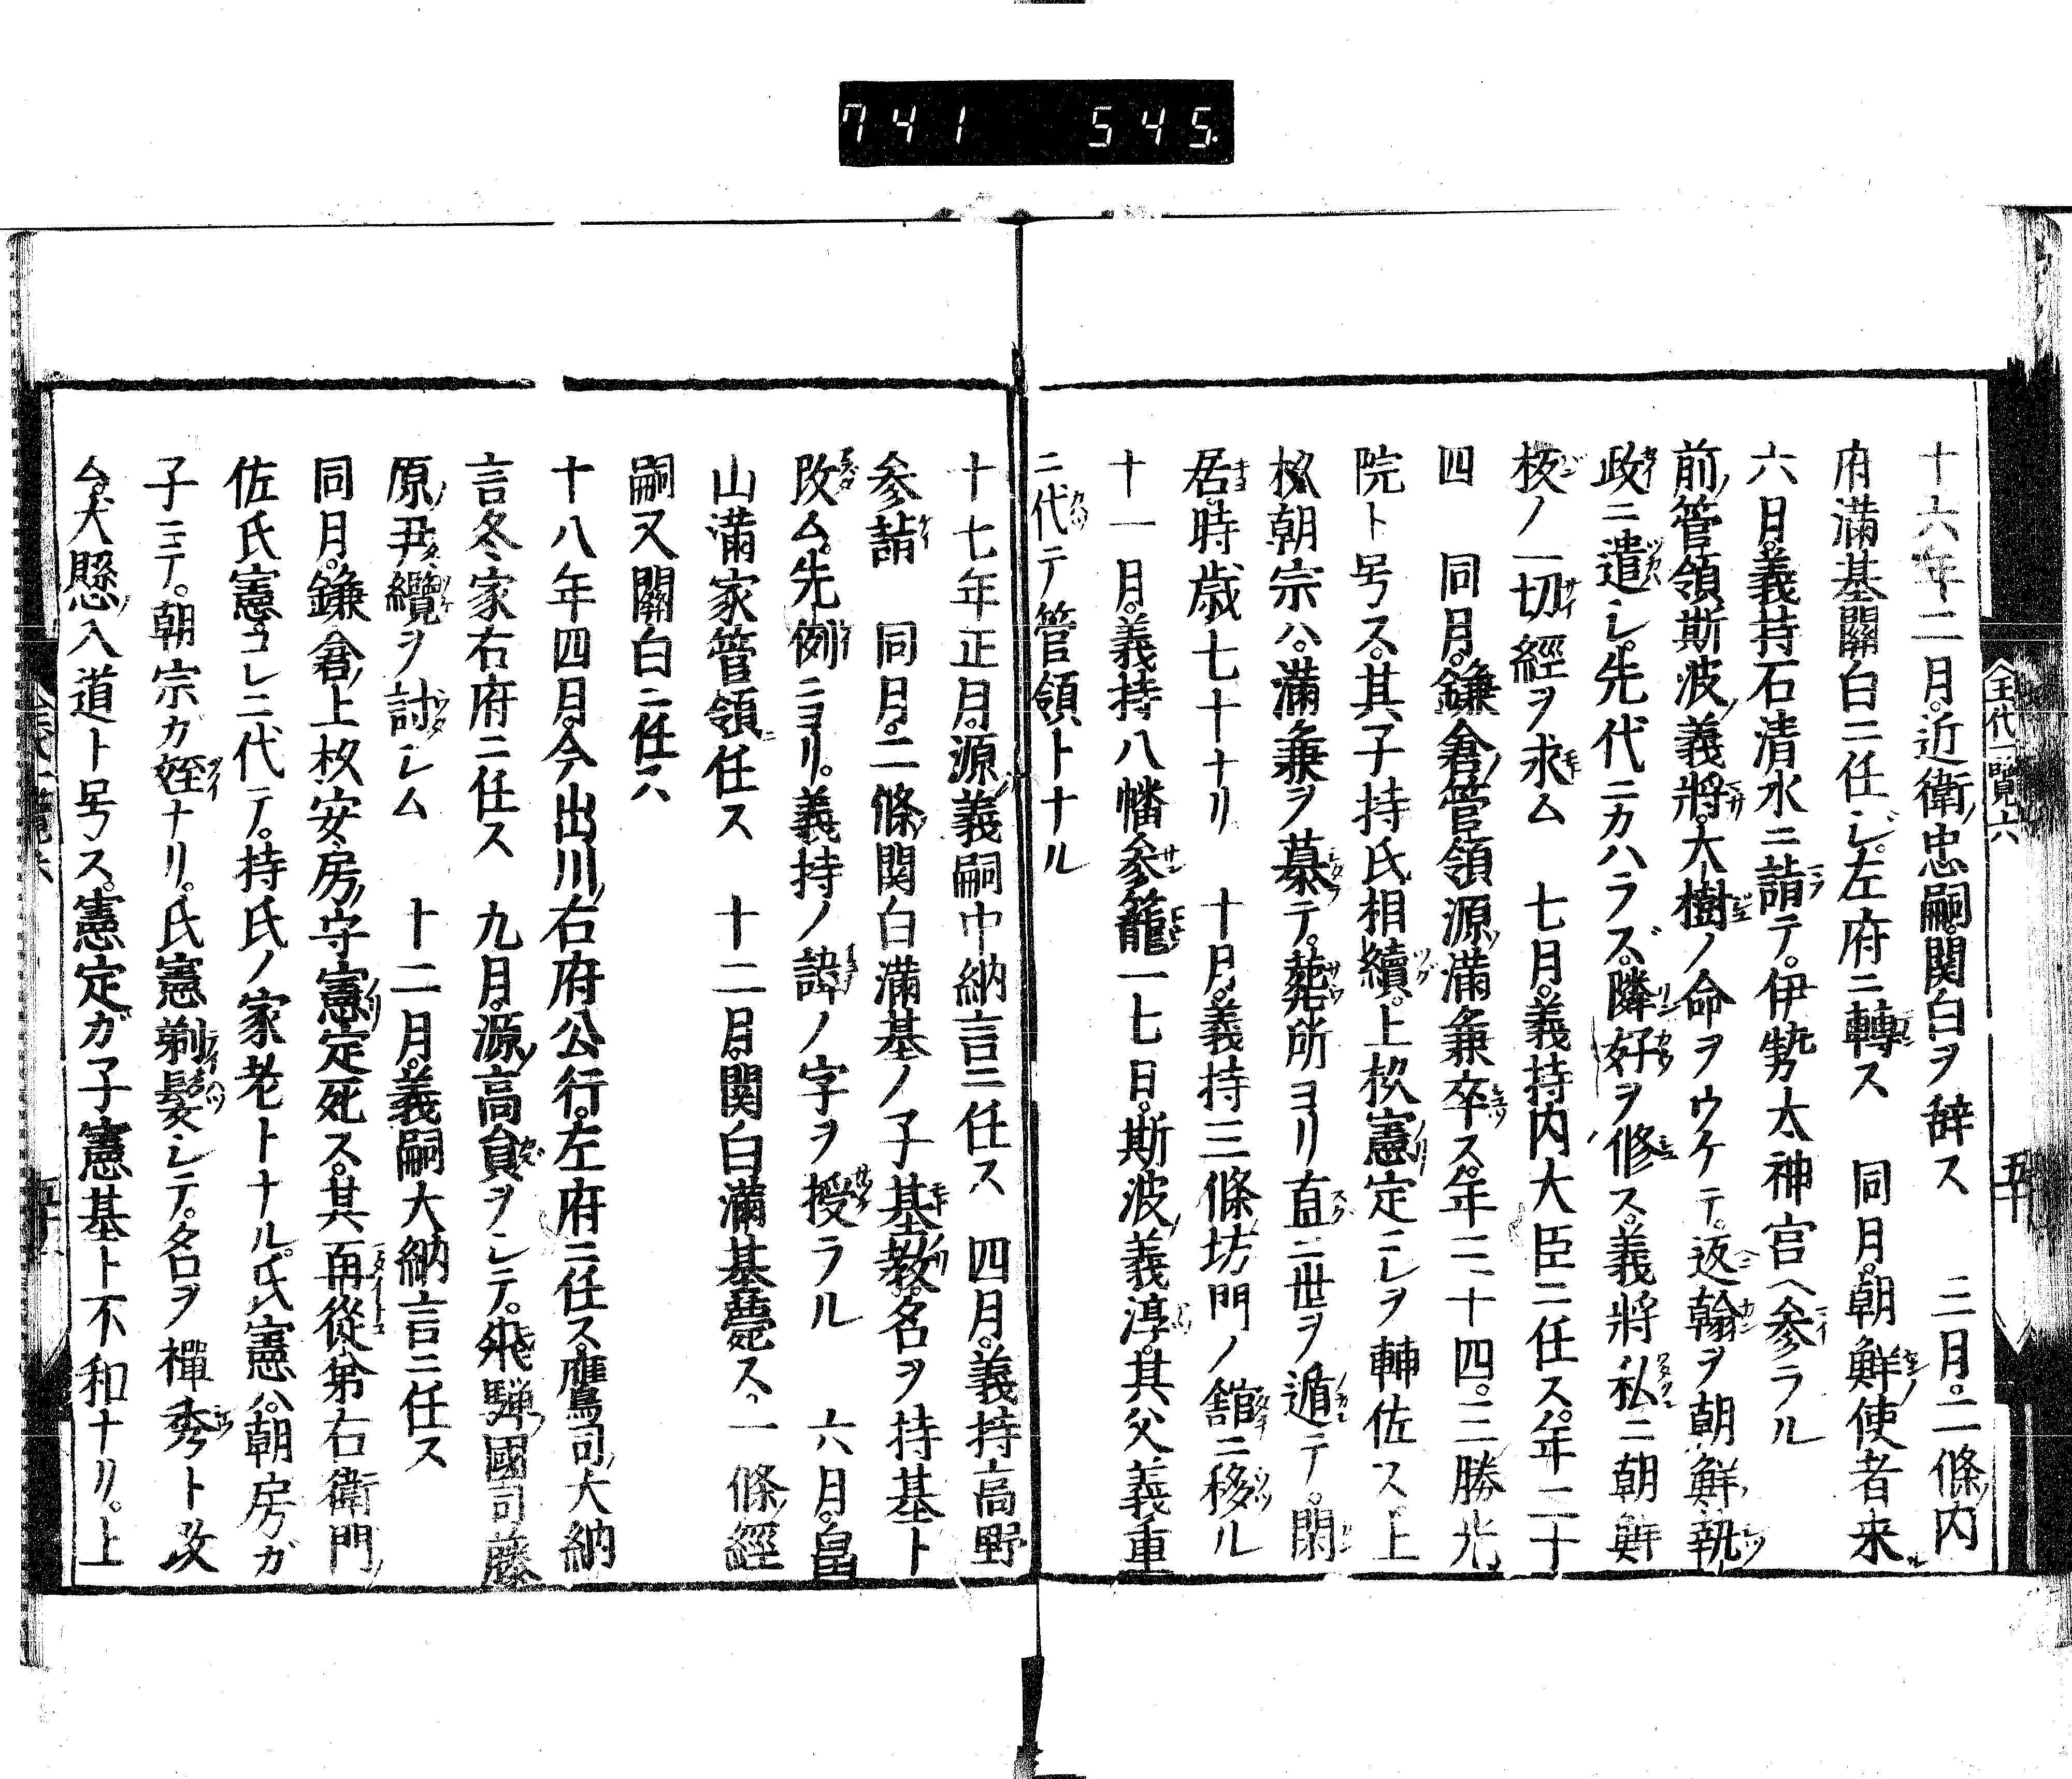 741 545
王代一覽六
五十
十六年二月。近衛忠嗣。関白ヲ辞ス 三月。二條内
府満基關白ニ任ジ。左府ニ轉ス 同月。朝鮮使者来
六月。義持石清水ニ詣テ。伊勢太神宮ヘ参ラル
前管領斯波義將。大樹ノ命ヲウケテ。返翰ヲ朝鮮執
政ニ遣シ。先代ニカハラズ。隣好ヲ修ス。義將私ニ朝鮮
板ノ一切經ヲ求ム 七月。義持内大臣ニ任ス。年二十
四 同月。鎌倉管領源満兼卒ス。年二十四。三勝光
院ト号ス。其子持氏相續。上杦憲定コレヲ輔佐ス。上
杦朝宗ハ。満兼ヲ慕テ。葬所ヨリ直ニ世ヲ遁テ。閑
居。時歳七十ナリ 十月。義持三條坊門ノ舘ニ移ル
十一月。義持八幡参籠一七日。斯波義淳。其父義重
ニ代テ管領トナル
十七年正月。源義嗣中納言ニ任ス 四月。義持高野
参詣 同月。二條関白満基ノ子基教。名ヲ持基ト
改ム。先例ニヨリ。義持ノ諱ノ字ヲ授ラル 六月。畠
山満家管領ニ任ス 十二月。関白満基薨ス。一條經
嗣又關白ニ任ス
十八年四月。今出川右府公行。左府ニ任ス。鷹司大納
言冬家右府ニ任ス 九月。源高員ヲシテ。飛騨國司藤
原尹纜ヲ討シム 十二月。義嗣大納言ニ任ス
同月。鎌倉上杦安房守憲定死ス。其再從弟右衛門
佐氏憲。コレニ代テ。持氏ノ家老トナル。氏憲ハ。朝房ガ
子ニテ。朝宗ガ姪ナリ。氏憲剃髪シテ。名ヲ禪秀ト改
ム。犬懸入道ト号ス。憲定ガ子憲基ト不和ナリ。上